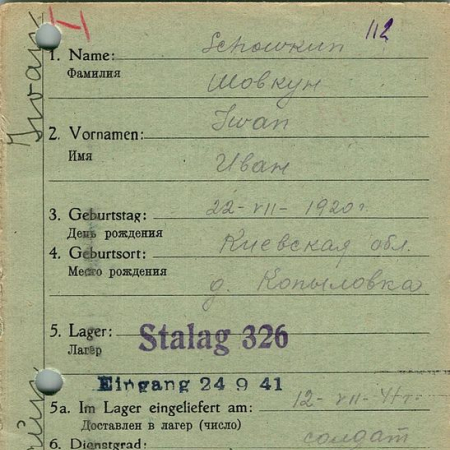 112
1. Name: Schowkun
Фамилия Шовкун
2. Vornamen: Iwan
Имя Иван
3. Geburtstag: 22-VII-1920 г.
День рождения
4. Geburtsort: Киевская обл.
Место рождения д. Копыловка
5. Lager: Stalag 326
Лагер
Eingang 24 9 41
5a. Im Lager eingeliefert am: 12-VII-41 г.
Доставлен в лагер (число)
6. Dienstgrad: солдат
Iwan